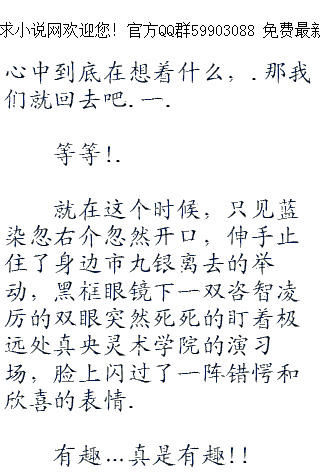 求小说网欢迎您! 官方QQ群59903088 免费最新
心中到底在想着什么，.那我
们就回去吧.一.
等等!.
就在这个时候，只见蓝
染忽右介忽然开口，伸手止
住了身边市丸银离去的举
动，黑框眼镜下一双咨智凌
厉的双眼突然死死的盯着极
远处真央灵术学院的演习
场，脸上闪过了一阵错愕和
欣喜的表情.
有趣...真是有趣!!